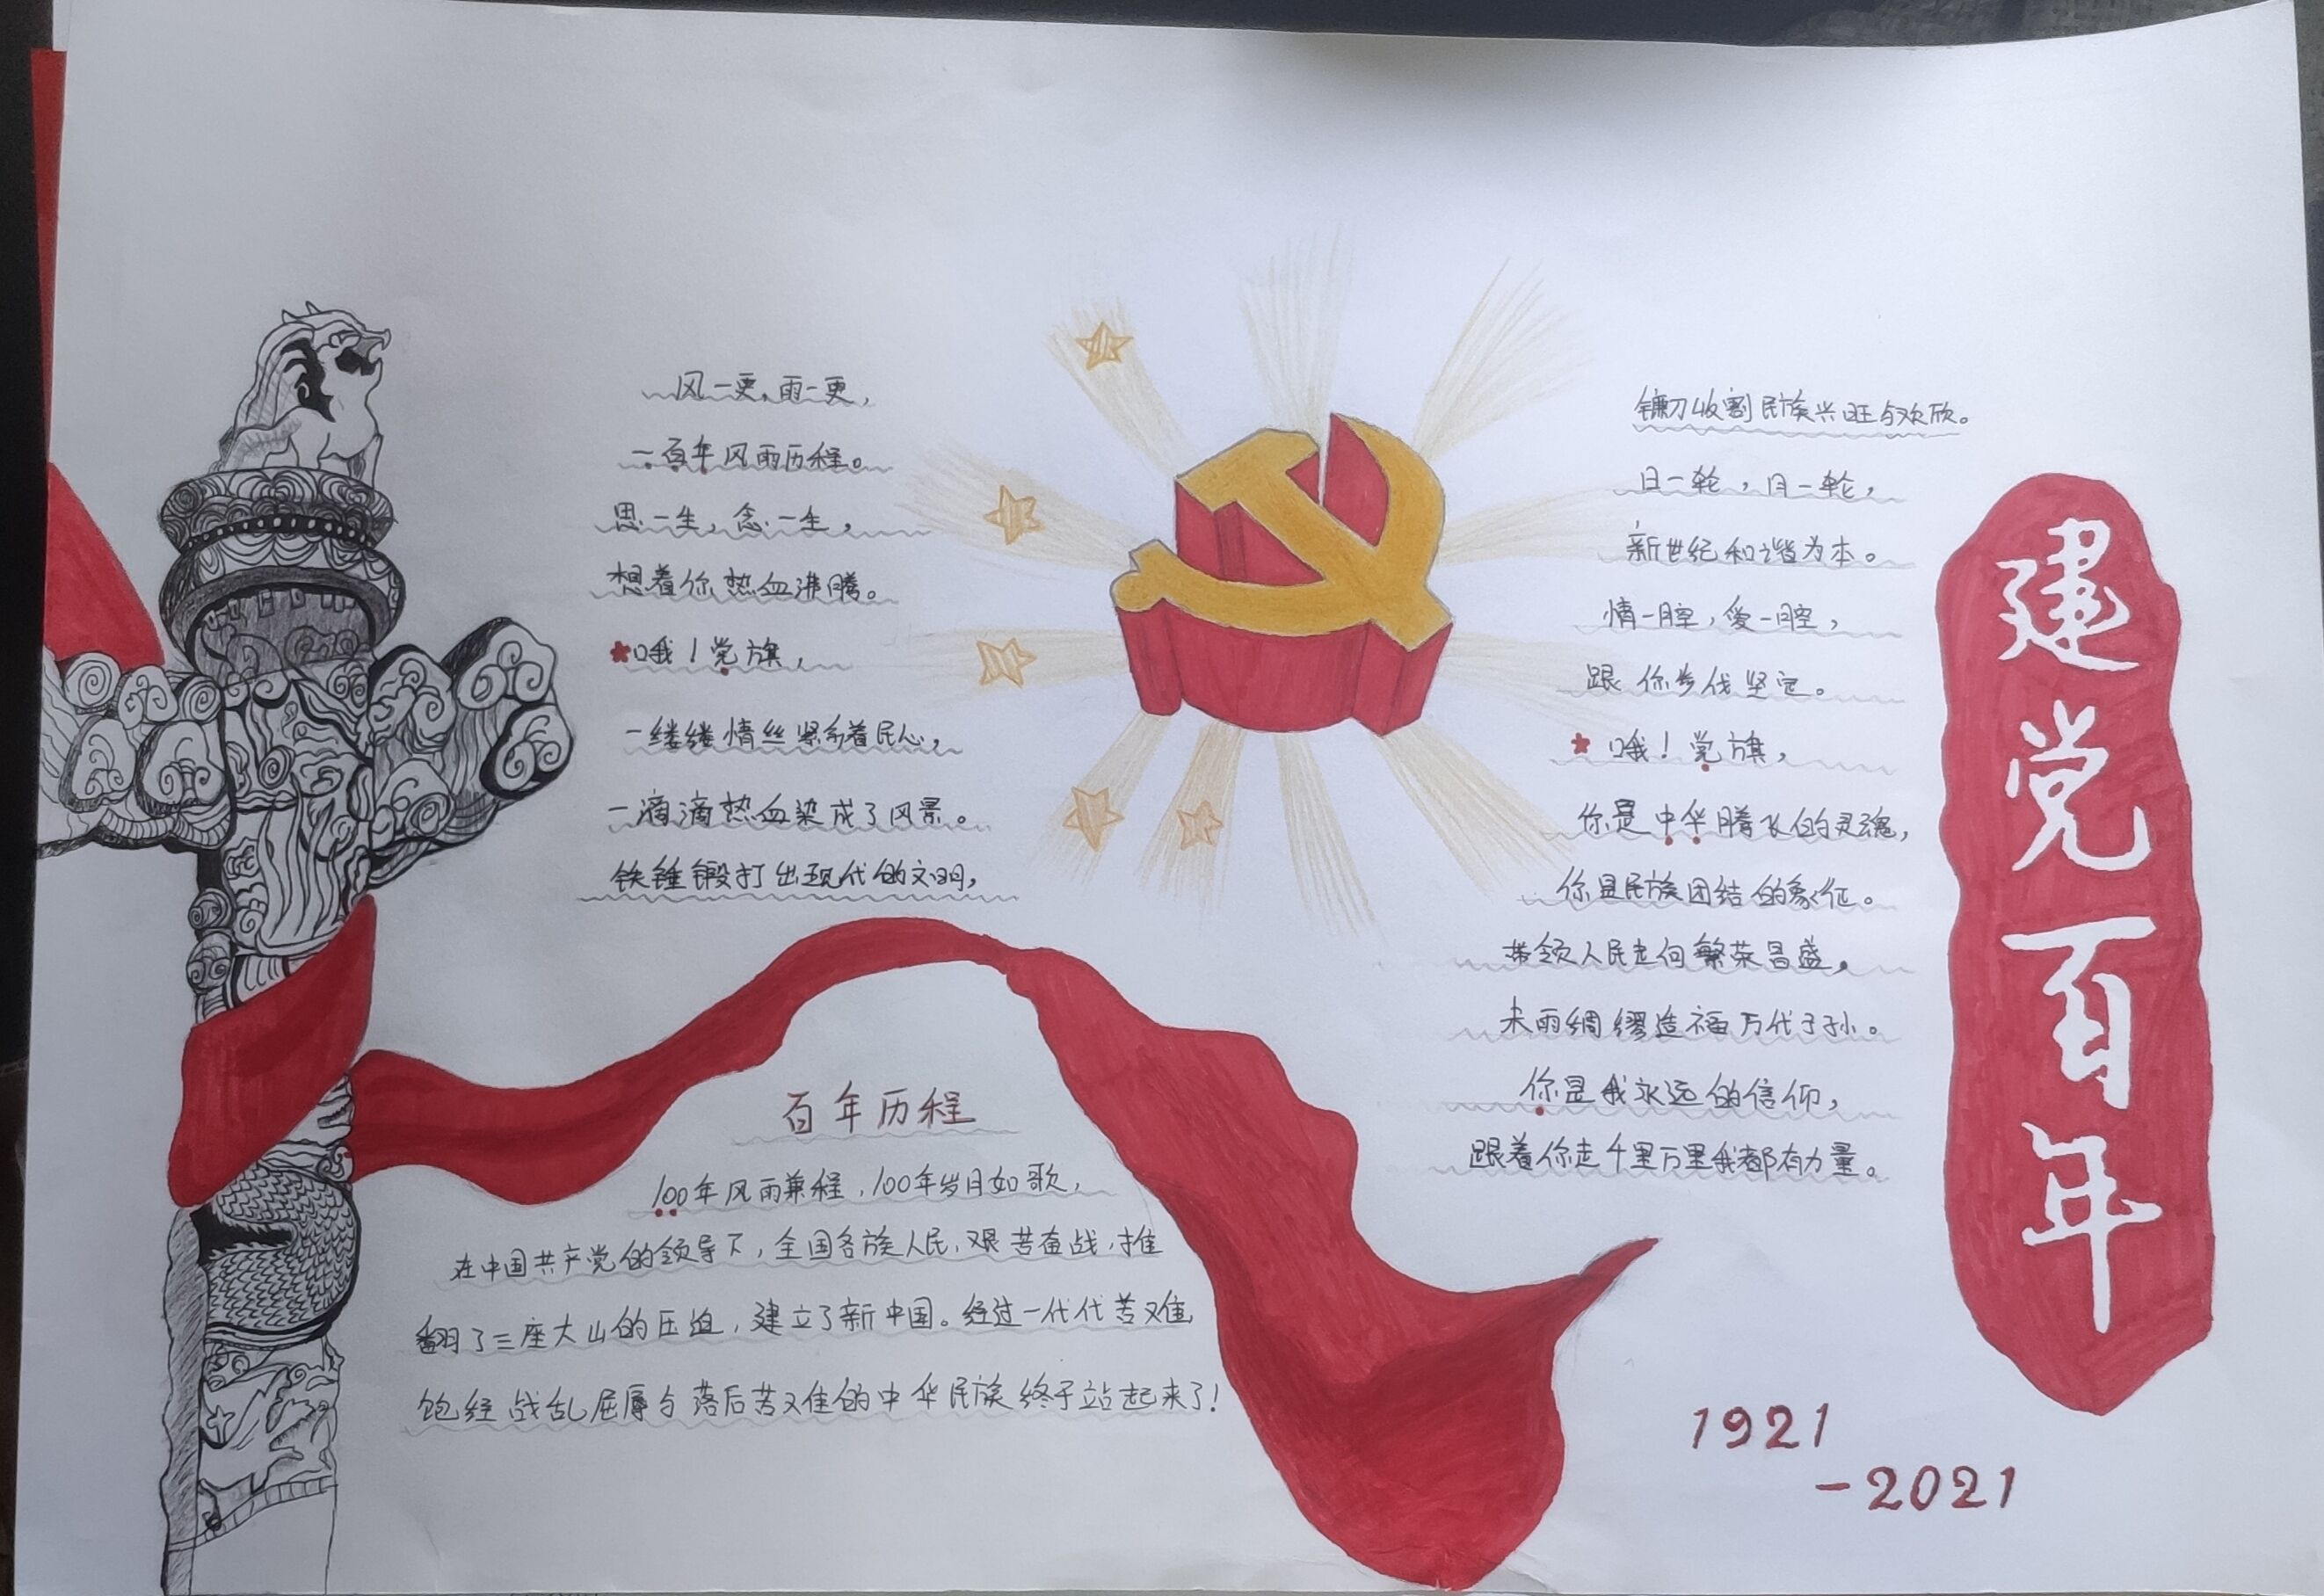 风一更,雨一更,
一百年风雨历程。
思一生,念一生,
想着你热血沸腾。
哦!党旗,
一缕缕情丝紧系着民心,
一滴滴热血染成了风景。
铁锤锻打出现代的文明,
镰刀收割民族兴旺与欢欣。
日一轮,月一轮,
新世纪和谐为本。
情一腔,爱一腔,
跟你步伐坚定。
哦!党旗,
你是中华腾飞的灵魂,
你是民族团结的象征。
带领人民走向繁荣昌盛,
未雨绸缪造福万代子孙。
你是我永远的信仰,
跟着你走千里万里我都有力量。
百年历程
100年风雨兼程,100年岁月如歌,
在中国共产党的领导下,全国各族人民,艰苦奋战,推
翻了三座大山的压迫,建立了新中国。经过一代代苦难,
饱经战乱屈辱与落后苦难的中华民族终于站起来了!
建党百年
1921
-2021